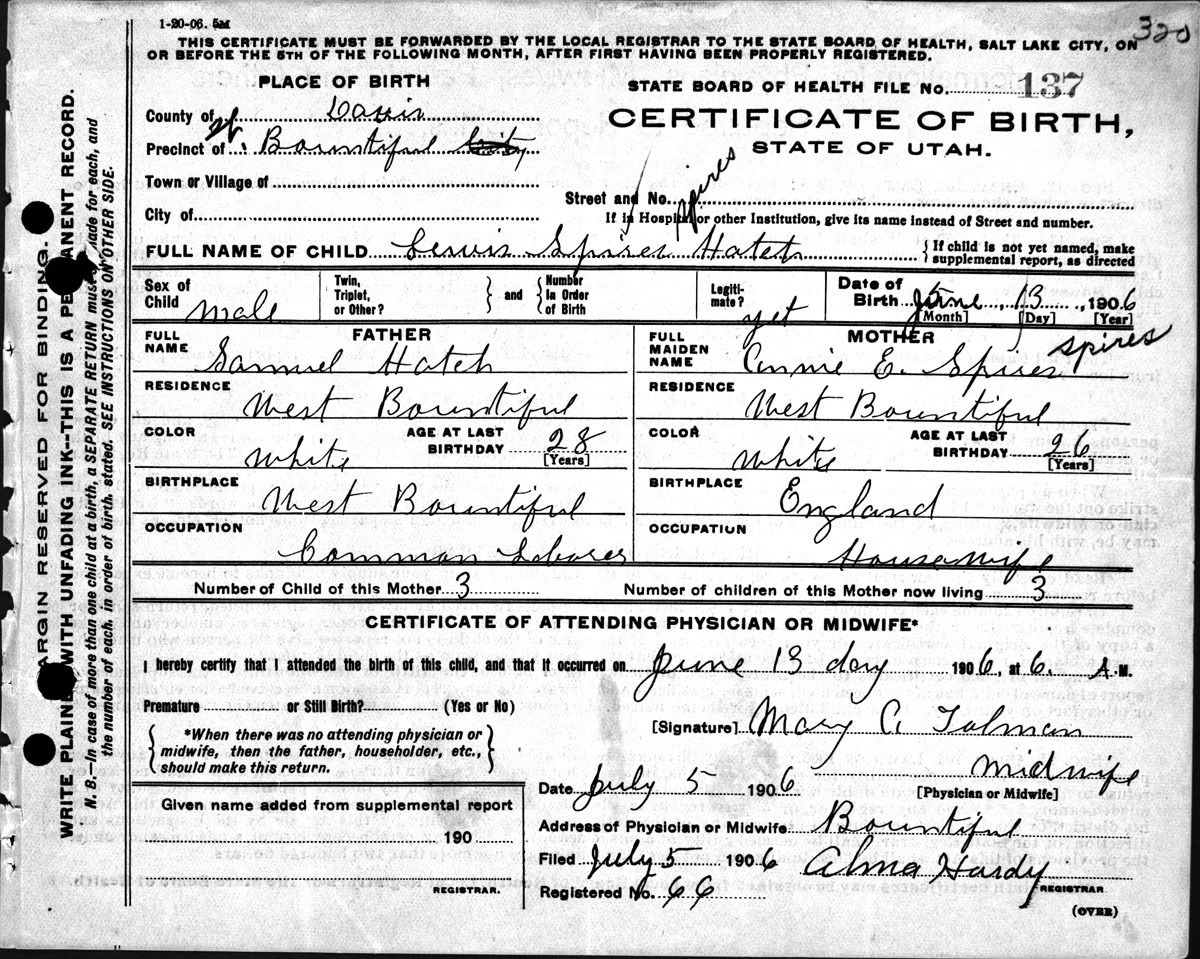 1-20-06. 5M
320
THIS CERTIFICATE MUST BE FORWARDED BY THE LOCAL REGISTRAR TO THE STATE BOARD OF HEALTH, SALT LAKE CITY, ON
OR BEFORE THE 5TH OF THE FOLLOWING MONTH, AFTER FIRST HAVING BEEN PROPERLY REGISTERED.
PLACE OF BIRTH
County of Davis
Precinct of W. Bountiful City
Town or Village of
City of
STATE BOARD OF HEALTH FILE No. 137
CERTIFICATE OF BIRTH,
STATE OF UTAH.
Street and No.
If in Hospital or other Institution, give its name instead of Street and number.
Spires
FULL NAME OF CHILD Lewis Spires Hatch { If child is not yet named, make
supplemental report, as directed
Sex of Child Male
Twin, Triplet, or Other? } and { Number In Order of Birth
Legitimate? yet
Date of Birth June 13, 1906
[Month] [Day] [Year]
FATHER
FULL NAME Samuel Hatch
RESIDENCE West Bountiful
COLOR White AGE AT LAST BIRTHDAY 28 [Years]
BIRTHPLACE West Bountiful
OCCUPATION Common Laborer
MOTHER
FULL MAIDEN NAME Annie E. Spires Spires
RESIDENCE West Bountiful
COLOR White AGE AT LAST BIRTHDAY 26 [Years]
BIRTHPLACE England
OCCUPATION Housewife
Number of Child of this Mother 3 Number of children of this Mother now living 3
CERTIFICATE OF ATTENDING PHYSICIAN OR MIDWIFE*
I hereby certify that I attended the birth of this child, and that it occurred on June 13 day 1906, at 6. A.M.
Premature or Still Birth? (Yes or No)
*When there was no attending physician or
midwife, then the father, householder, etc.,
should make this return.
Given name added from supplemental report
190
REGISTRAR.
[Signature] Mary C. Tolman
Midwife
[Physician or Midwife]
Date July 5 1906
Address of Physician or Midwife Bountiful
Filed July 5 1906 Alma Hardy
REGISTRAR
Registered No. 66
(OVER)
MARGIN RESERVED FOR BINDING.
WRITE PLAINLY WITH UNFADING INK--THIS IS A PERMANENT RECORD.
N. B.—In case of more than one child at a birth, a SEPARATE RETURN must be made for each, and
the number of each, in order of birth, stated. SEE INSTRUCTIONS ON OTHER SIDE.